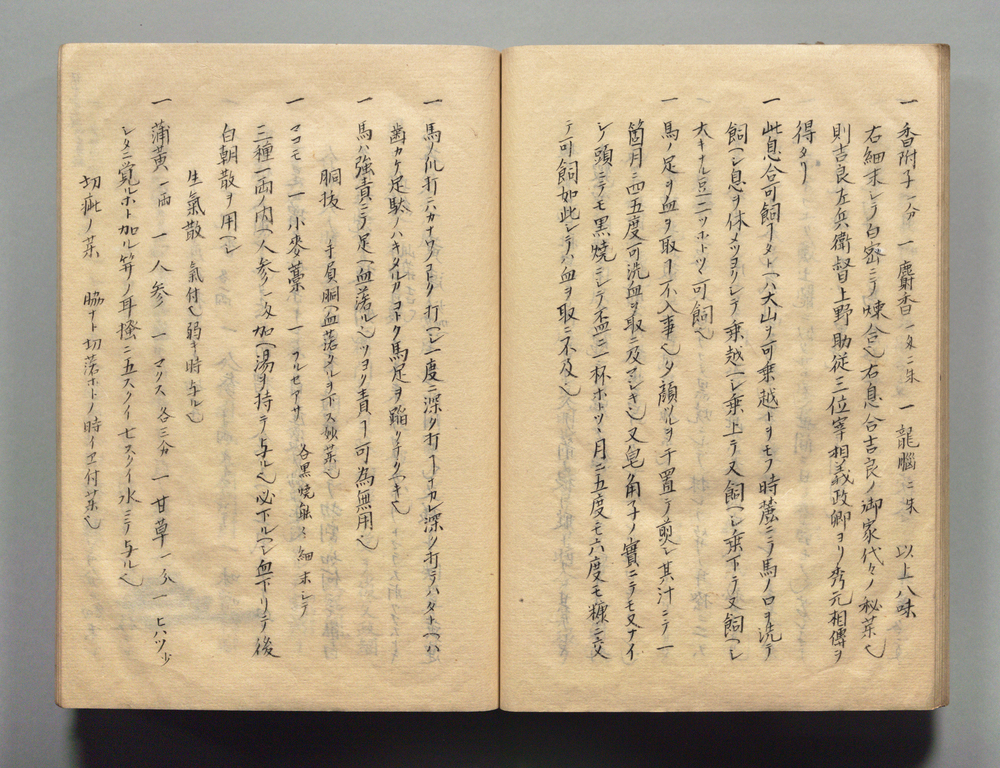 一 香附子二分 一 麝香一匁二朱 一 龍腦二朱 以上八味
右細末シテ白密ニテ煉合也右息合吉良ノ御家代々ノ秘薬也
則吉良左兵衛督上野助従三位宰相義政卿ヨリ秀元相傳ヲ
得タリ
一 此息合可飼ヿタトヘハ大山ヲ可乗越トヲモフ時麓ニテ馬ノ口ヲ洗テ
飼ヘシ息ヲ休メツヨリシテ乗越ヘシ乗上テ又飼ヘシ乗下テ又飼ヘシ
大キナル豆二ツホトツヽ可飼也
一 馬ノ足ヲ血ヲ取ヿ不入事也夕顔ツルヲ干置テ煎シ其汁ニテ一
箇月ニ四五度可洗血ヲ取ニ及マシキ也又皂角子ノ實ニテモ又ナイ
シ頭ニテモ黒焼ニシテ盃ニ一杯ホトツヽ月ニ五度モ六度モ糠ニ交
テ可飼如此シテハ血ヲ取ニ不及也
一 馬ノ爪打ニカナワヌコトク打ヘシ一度ニ深ク打ヿナカレ深ク打テハタトヘハ
歯カケ足駄ハキタルカコトク馬足ヲ蹈
一 馬ハ強責ニテ足ヘ血落ル也ツヨク責ヿ可為無用也
胴抜 手負胴ヘ血落タルヲ下ス妙薬也
一 マコモ 一 小麥藁 一 フルセアサ 各黒焼 細末シテ
三種一両ノ内ヘ人参一匁加ヘ湯ヲ持テ与ル也必下ルヘシ血下リテ後
白朝散ヲ用ヘシ
生氣散 氣付也弱キ時与ル也
一 蒲黄一両 一 人参 一 マクス 各三分 一 甘草一分 一 ヒハツ少
シタニ覚ホト加ル笄ノ耳掻ニ五スクイ七スクイ水ニテ与ル也
切疵ノ薬 脇ナト切落ホトノ時イヱ付薬也